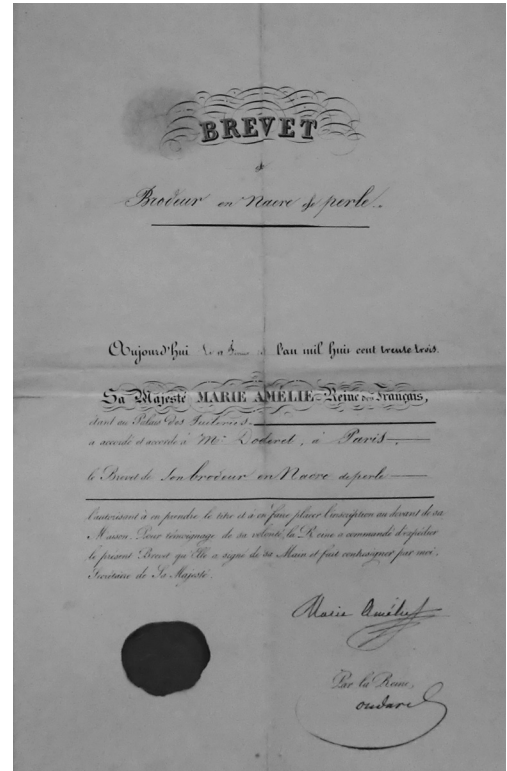 BREVET
de
Brodeur en Nacre de perle.
Aujourd'hui l'an mil huit cent trente trois.
Sa Majesté MARIE AMÉLIE Reine des Français,
étant au Palais des Tuileries.
a accordé et accorde à Mr Doderet, à Paris
le Brevet de son brodeur en Nacre de perle
l'autorisant à en prendre le titre et à en faire placer l'inscription au devant de sa
Maison. Pour témoignage de sa volonté, la Reine a commandé d'expédier
le présent Brevet qu'Elle a signé de sa Main et fait contresigner par moi,
Secrétaire de Sa Majesté.
Marie Amélie
Par la Reine,
oudard